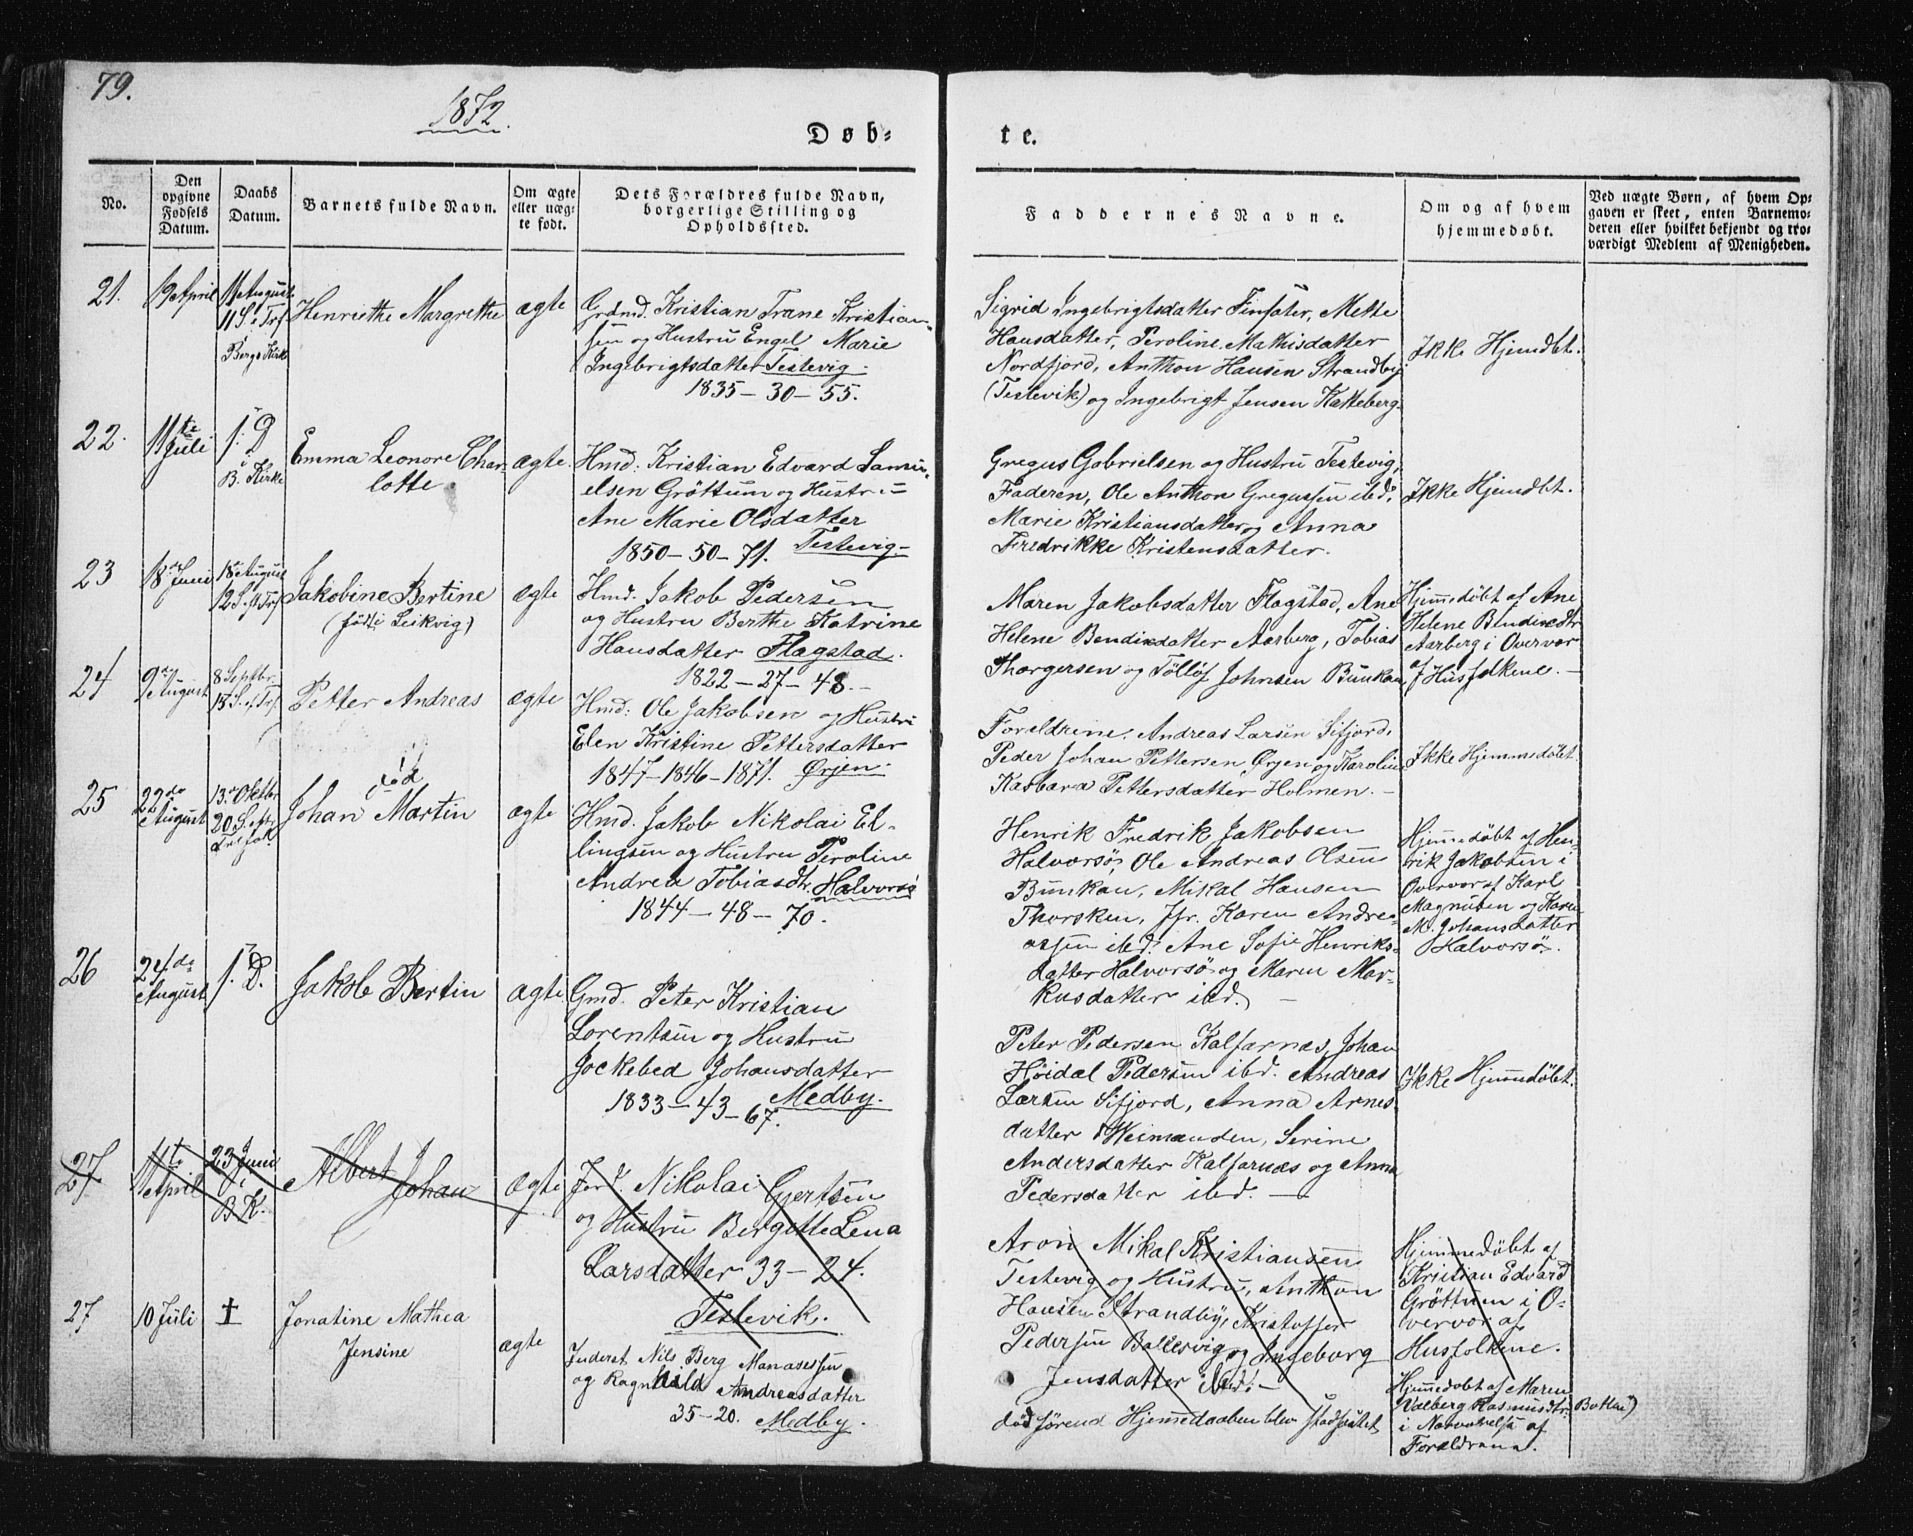 79.
1872.
Døb-
te.
No.
Den
opgivne
Fødsels
Datum.
Daabs
Datum.
Barnets fulde Navn.
Om ægte
eller uæg-
te født.
Dets Forældres fulde Navn,
borgerlige Stilling og
Opholdssted.
Faddernes Navne.
Om og af hvem
hjemmedøbt.
Ved uægte Børn, af hvem Op-
gaven er skeet, enten Barnemo-
deren eller hvilket bekjendt og tro-
værdigt Medlem af Menigheden.
21.
19 April
11 August
11 S. e. Trf
Bergs Kirke
Henriethe Margrethe
ægte
Grdmd. Kristian Trane Kristian-
sen og Hustru Engel Marie
Ingebrigtsdatter Testevig.
1835 - 30 - 55.
Sigrid Ingebrigtsdatter Finsæter, Mette
Hansdatter, Peroline Mathisdatter
Nordfjord, Anthon Hansen Strandby
(Testevik) og Ingebrigt Jensen Katteberg.
Ikke Hjemdbt.
22.
11te
Juli
s. D.
i
B. Kirke
Emma Leonore Char-
lotte.
ægte.
Hmd: Kristian Edvard Samu-
elsen Gröttum og Hustru
Ane Marie Olsdatter
1850 - 50 - 71. Testevig -
Gregus Gabrielsen og Hustru Testevig,
Faderen, Ole Anthon Gregussen ibd,
Marie Kristiansdatter og Anna
Fredrikke Kristensdatter.
Ikke Hjemdbt.
23
18de Juni
18 August
12 S. e. Trf
Jakobine Bertine
(født i Leikvig)
ægte
Hmd. Jakob Pedersen
og Hustru Berthe Katrine
Hansdatter Flagstad.
1822 - 27 - 48. -
Maren Jakobsdatter Flagstad, Ane
Helene Bendiksdatter Aasberg, Tobias
Thorgersen og Tölløf Johnsen Bunkan
Hjemmedøbt af Ane
Helene Bendiksdtr
Aarberg i Overvær
af Husfolkene. -
24
9de
August
8 Septbr.
15 S. e. Trf.
Petter Andreas
ægte
Hmd: Ole Jakobsen og Hustru
Elen Kristine Pettersdatter
1847 - 1846 - 1871. Ørjen.
Forældrene. Andreas Larsen Sifjord,
Peder Johan Pettersen Ørjen og Karoline
Kasbara Pettersdatter Holmen. -
Ikke Hjemmedøbt
25
22de
August
13. Oktbr
20 S. e.
Trefold.
død
Johan Martin
ægte
Hmd. Jakob Nikolai El-
lingsen og Hustru Peroline
Andrea Tobiasdtr. Halvorsø
1844 - 48 - 70.
Henrik Fredrik Jakobsen
Halvorsø, Ole Andreas Olsen
Bunkan, Mikal Hansen
Thorsken, Jfr. Karen Andre-
assen ibd. Ane Sofie Henriks-
datter Halvorsø og Maren Mar-
kusdatter ibd. -
Hjemmedøbt af Hen-
rik Jakobsen i
Overvær af Karl
Magnusen og Karen
M. Johansdatter
Halvorsø.
26
24de
August
s. D.
Jakob Bertin
ægte
Gmd. Peter Kristian
Lorentsen og Hustru
Jockebed Johansdatter
1833 - 43 - 67. Medby.
Peter Pedersen Kalfarnæs, Johan
Höidal Pedersen ibd. Andreas
Larsen Sifjord, Anna Arnes-
datter Weimanden, Serine
Andersdatter Kalfarnæs og Anna
Pedersdatter ibd. -
Ikke Hjemmdöbt.
27
11te
April
23 Juni
i
B. K.
Albert Johan
ægte
Jord. Nikolai Gjertsen
og Hustru Bergitte Lena
Larsdatter 33 - 24.
Testevik.
Aron Mikal Kristiansen
Testevig og Hustru, Anthon
Hansen Strandby, Kristoffer
Pedersen Ballesvig og Ingeborg
Jensdatter ibd. -
Hjemmedøbt af
Kristian Edvard
Gröttum i O-
vervær af
Husfolkene.
27
10 Juli
†
Jonatine Mathea
Jensine
ægte
Inderst. Nils Berg Manassessen
og Ragnhild Andreasdatter
35 - 20. Medby.
død førend Hjemmedaaben blev stadfæstet
Hjemmedøbt af Maren
Valberg Rasmusdtr. Botten)
i Nærværelse af
Forældrene.